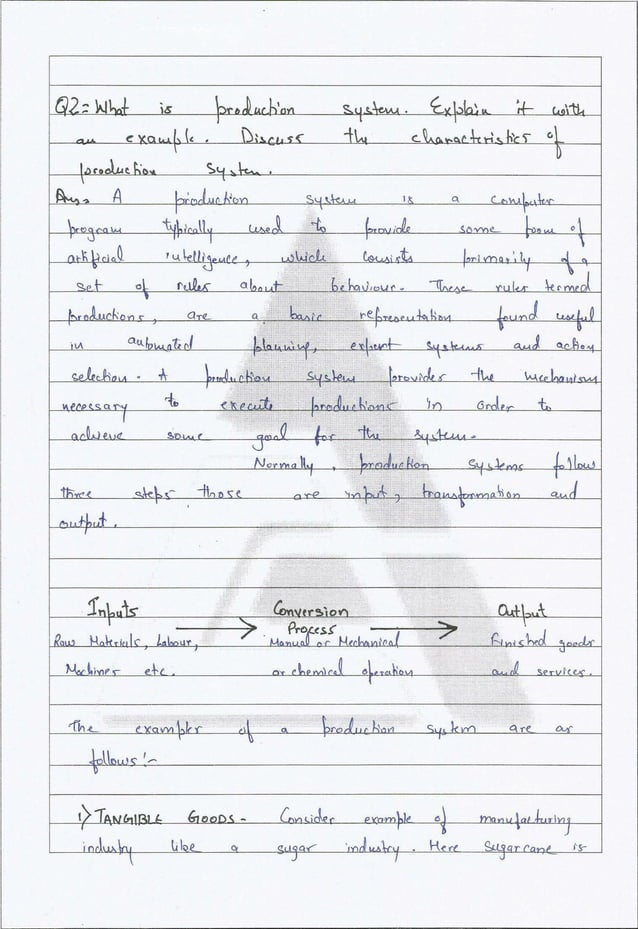 Q2= What is production system. Explain it with
an example. Discuss the characteristics of
production system.
Ans= A production system is a computer
program typically used to provide some form of
artificial intelligence, which consists primarily of a
set of rules about behaviour. These rules termed
productions, are a basic representation found useful
in automated planning, expert systems and action
selection. A production system provides the mechanism
necessary to execute productions in order to
achieve some goal for the system.
Normally, production systems follow
three steps those are input, transformation and
output.
Inputs → Conversion Process → Output
Raw Materials, Labour, Manual or Mechanical Finished goods
Machines etc. or chemical operation and services.
The examples of a production system are as
follows:-
1) TANGIBLE GOODS - Consider example of manufacturing
industry like a sugar industry. Here Sugarcane is